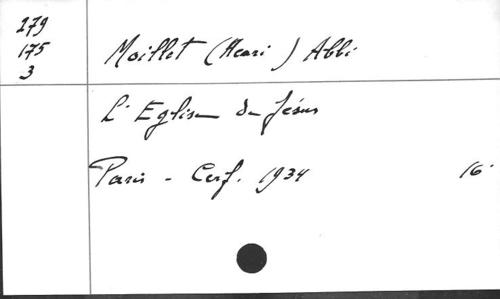 279
175
3
Moillet (Henri) Abbé
L'Eglise de Jésus
Paris - Cerf. 1934 16°